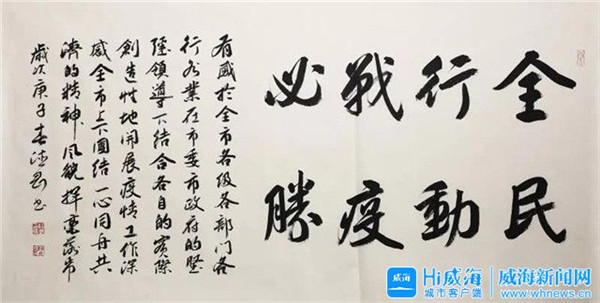 全民
行動
戰疫
必勝
有感於全市各级各部门各
行各業在市委市政府的堅
强領導下結合各自的實際
創造性地開展疫情工作深
感全市上下團结一心同舟共
濟的精神風貌揮毫落帋
歲次庚子春
威海
Hi威海
城市客户端
威海新闻网
www.whnews.cn